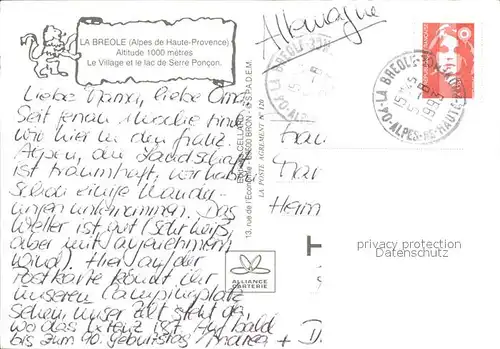 LA BREOLE (Alpes de Haute-Provence)
Altitude 1000 mètres
Le Village et le lac de Serre Ponçon.
Allemagne
Liebe Mama, liebe Oma
Seit genau 1 Woche sind
wir hier in den franz.
Alpen, die Landschaft
ist traumhaft, wir haben
schon einige Wande-
rungen unternommen. Das
Wetter ist gut (sehr heiß,
aber mit angenehmem
Wind). Hier auf der
Postkarte könnt ihr
unseren Campingplatz
sehen, unser Zelt steht da,
wo das Kreuz ist. Auf bald
bis zum 90. Geburtstag Andrea + D
13, rue de l'Economie - 69500 BRON - O.S.P.A.D.E.M.
LA POSTE AGREMENT N° 120
ALLIANCE
CARTERIE
LA BREOLE
04-ALPES-DE-HAUTE-
15H45
5-8
1993
privacy protection
Datenschutz